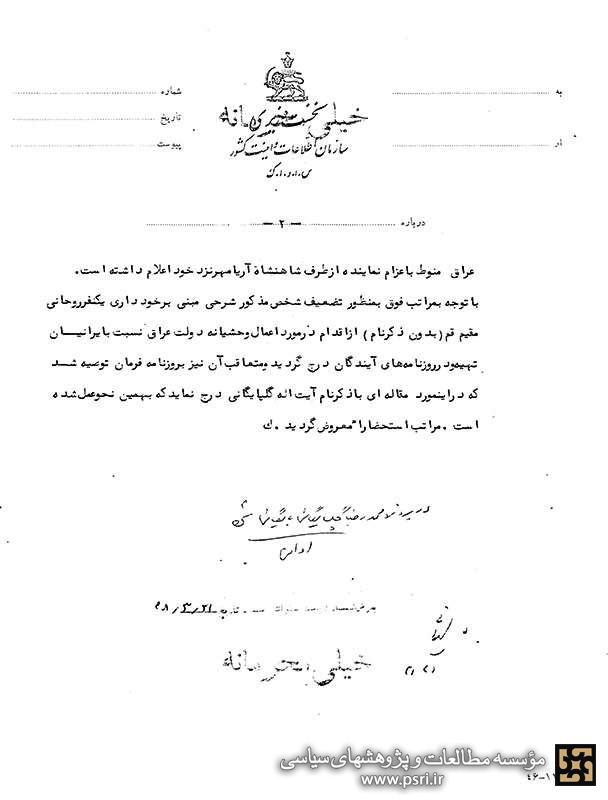 به
شماره
خیلی محرمانه
نخست وزیری
تاریخ
سازمان اطلاعات و امنیت کشور
از
پیوست
س.ا.و.ا.ک
درباره
- ۲ -
عراق منوط باعزام نماینده ازطرف شاهنشاه آریامهر نزد خود اعلام داشته است.
با توجه بمراتب فوق بمنظور تضعیف شخص مذکور شرحی مبنی برخودداری یکنفرروحانی
مقیم قم (بدون ذکرنام) ازاقدام درمورد اعمال وحشیانه دولت عراق نسبت بایرانیان
تهیه‌ودر روزنامه‌های آیندگان درج گردید ومتعاقب آن نیز بروزنامه فرمان توصیه شد
که دراینمورد مقاله ای باذکرنام آیت اله گلپایگانی درج نماید که بهمین نحو عمل شده
است. مراتب استحضارا" معروض گردید. ک
در پرونده محمد رضا گلپایگانی بایگانی شود
بعرض
۴۸/۳/۲۱
خیلی محرمانه
مؤسسه مطالعات و پژوهشهای سیاسی
www.psri.ir